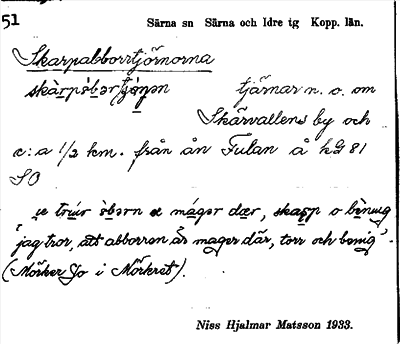 51
Särna sn Särna och Idre tg Kopp. län.
Skarpabborrtjörnorna
tjärnar n. o. om
Skärvallens by och
c:a 1/2 km. från ån Fulan å kbl 81
SO
"jag tror, att abborren är mager där, torr och benig".
(Mörker Jo i Mörkret).
Niss Hjalmar Matsson 1933.